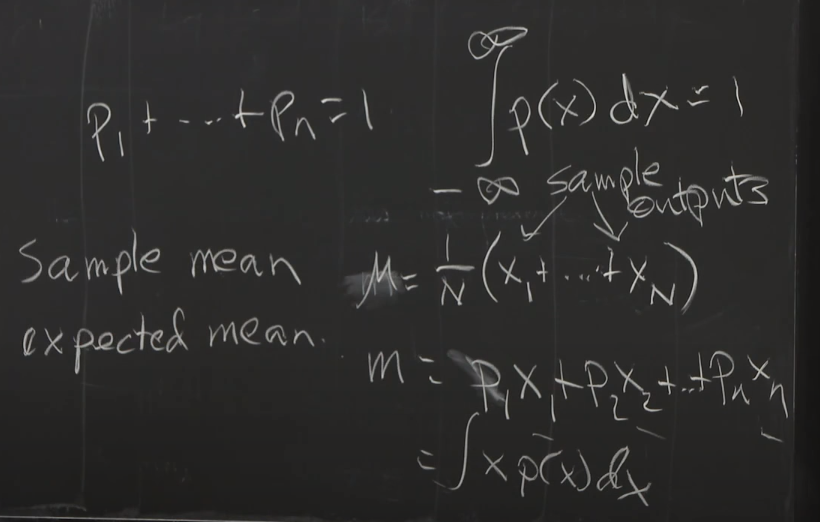 p₁ + ··· + pₙ = 1
∫_{-∞}^{∞} p(x) dx = 1
sample outputs
Sample mean μ = 1/N (x₁ + ··· + x_N)
expected mean. m = p₁x₁ + p₂x₂ + ·· + pₙxₙ
= ∫ x p(x) dx